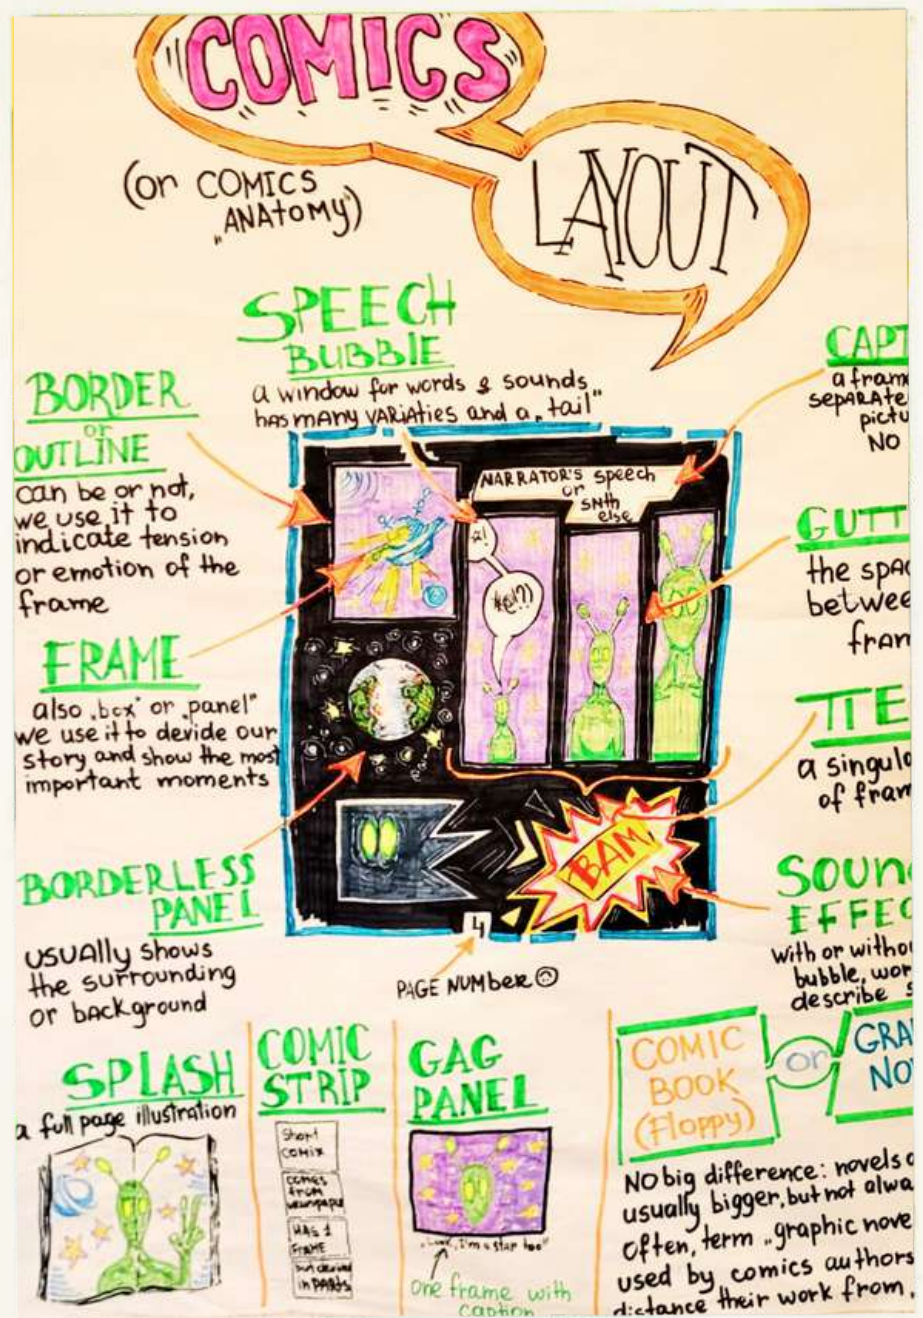 COMICS
LAYOUT
(or COMICS
„ANAtomy”)
SPEECH
BUBBLE
a window for words & sounds,
has mAny VARiAties and a „tail”
BORDER
or
OUTLINE
can be or not,
we use it to
indicate tension
or emotion of the
frame
FRAME
also „box” or „panel”
we use it to devide our
story and show the most
important moments
BORDERLESS
PANEL
usually shows
the surrounding
or background
NARRATOR'S speech
or
smth
else
*!
#@!?)
BAM
4
PAGE NUMbeR
CAPT
a fram
sepARAte
pictu
NO
GUTT
the spac
betwee
fram
TIE
a singula
of fram
SOUN
EFFEC
with or withou
bubble, wor
describe s
SPLASH
a full page illustration
COMIC
STRIP
Short
comix
comes
from
newspaper
HAS 1
FRAME
but devided
in PARts
GAG
PANEL
„Look, I'm a star too”
one frame with
caption
COMIC
BOOK
(Floppy)
or
GRA
NO
NO big difference: novels a
usually bigger, but not alwa
Often, term „graphic nove
used by comics authors
distance their work from